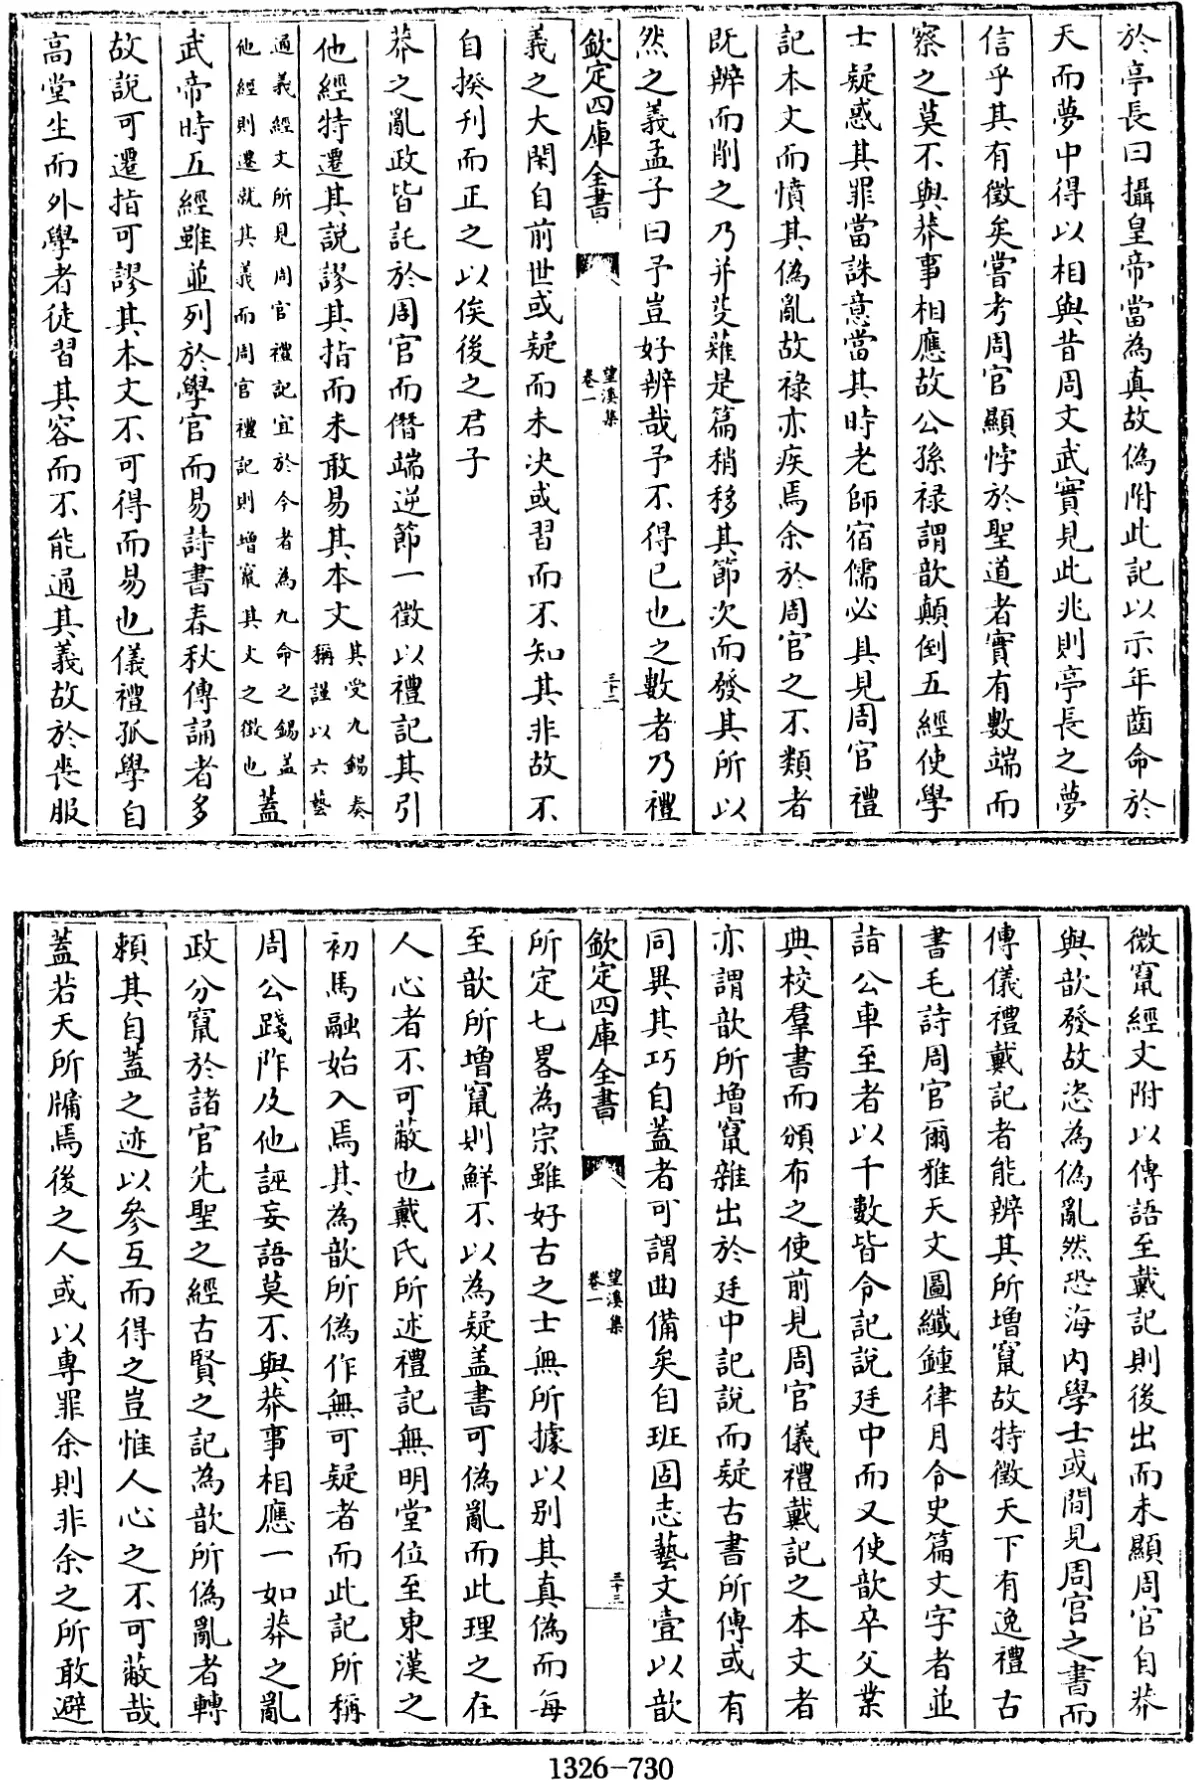 於亭長曰攝皇帝當為真故偽附此記以示年齒命於
天而夢中得以相與昔周文武實見此兆則亭長之夢
信乎其有徵矣嘗考周官顯悖於聖道者實有數端而
察之莫不與莽事相應故公孫祿謂歆顛倒五經使學
士疑惑其罪當誅意當其時老師宿儒必具見周官禮
記本文而憤其偽亂故祿亦疾焉余於周官之不類者
既辨而削之乃并芟薙是篇稍移其節次而發其所以
然之義孟子曰予豈好辨哉予不得已也之數者乃禮
欽定四庫全書
望溪集
卷一
三十二
義之大閑自前世或疑而未決或習而不知其非故不
自揆刊而正之以俟後之君子
莽之亂政皆託於周官而僭端逆節一徵以禮記其引
他經特遷其說謬其指而未敢易其本文其受九錫奏
稱謹以六藝
通義經文所見周官禮記宜於今者為九命之錫蓋
他經則遷就其義而周官禮記則增竄其文之徵也蓋
武帝時五經雖並列於學官而易詩書春秋傳誦者多
故說可遷指可謬其本文不可得而易也儀禮孤學自
高堂生而外學者徒習其容而不能通其義故於喪服
微竄經文附以傳語至戴記則後出而未顯周官自莽
與歆發故恣為偽亂然恐海內學士或間見周官之書而
傳儀禮戴記者能辨其所增竄故特徵天下有逸禮古
書毛詩周官爾雅天文圖纖鍾律月令史篇文字者並
詣公車至者以千數皆令記說廷中而又使歆卒父業
典校羣書而頒布之使前見周官儀禮戴記之本文者
亦謂歆所增竄雜出於廷中記說而疑古書所傳或有
同異其巧自蓋者可謂曲備矣自班固志藝文壹以歆
欽定四庫全書
望溪集
卷一
三十三
所定七畧為宗雖好古之士無所據以别其真偽而每
至歆所增竄則鮮不以為疑盖書可偽亂而此理之在
人心者不可蔽也戴氏所述禮記無明堂位至東漢之
初馬融始入焉其為歆所偽作無可疑者而此記所稱
周公踐阼及他誣妄語莫不與莽事相應一如莽之亂
政分竄於諸官先聖之經古賢之記為歆所偽亂者轉
賴其自蓋之迹以參互而得之豈惟人心之不可蔽哉
蓋若天所牖焉後之人或以專罪余則非余之所敢避
1326-730